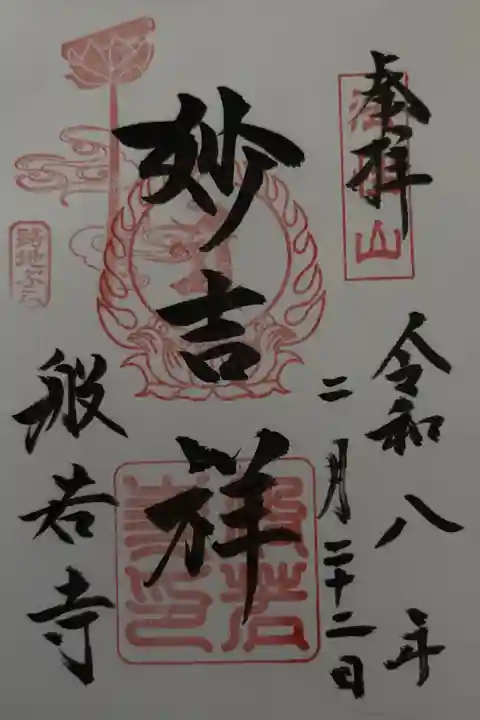 奉拝
令和八年
二月二十二日
妙吉祥
般若寺